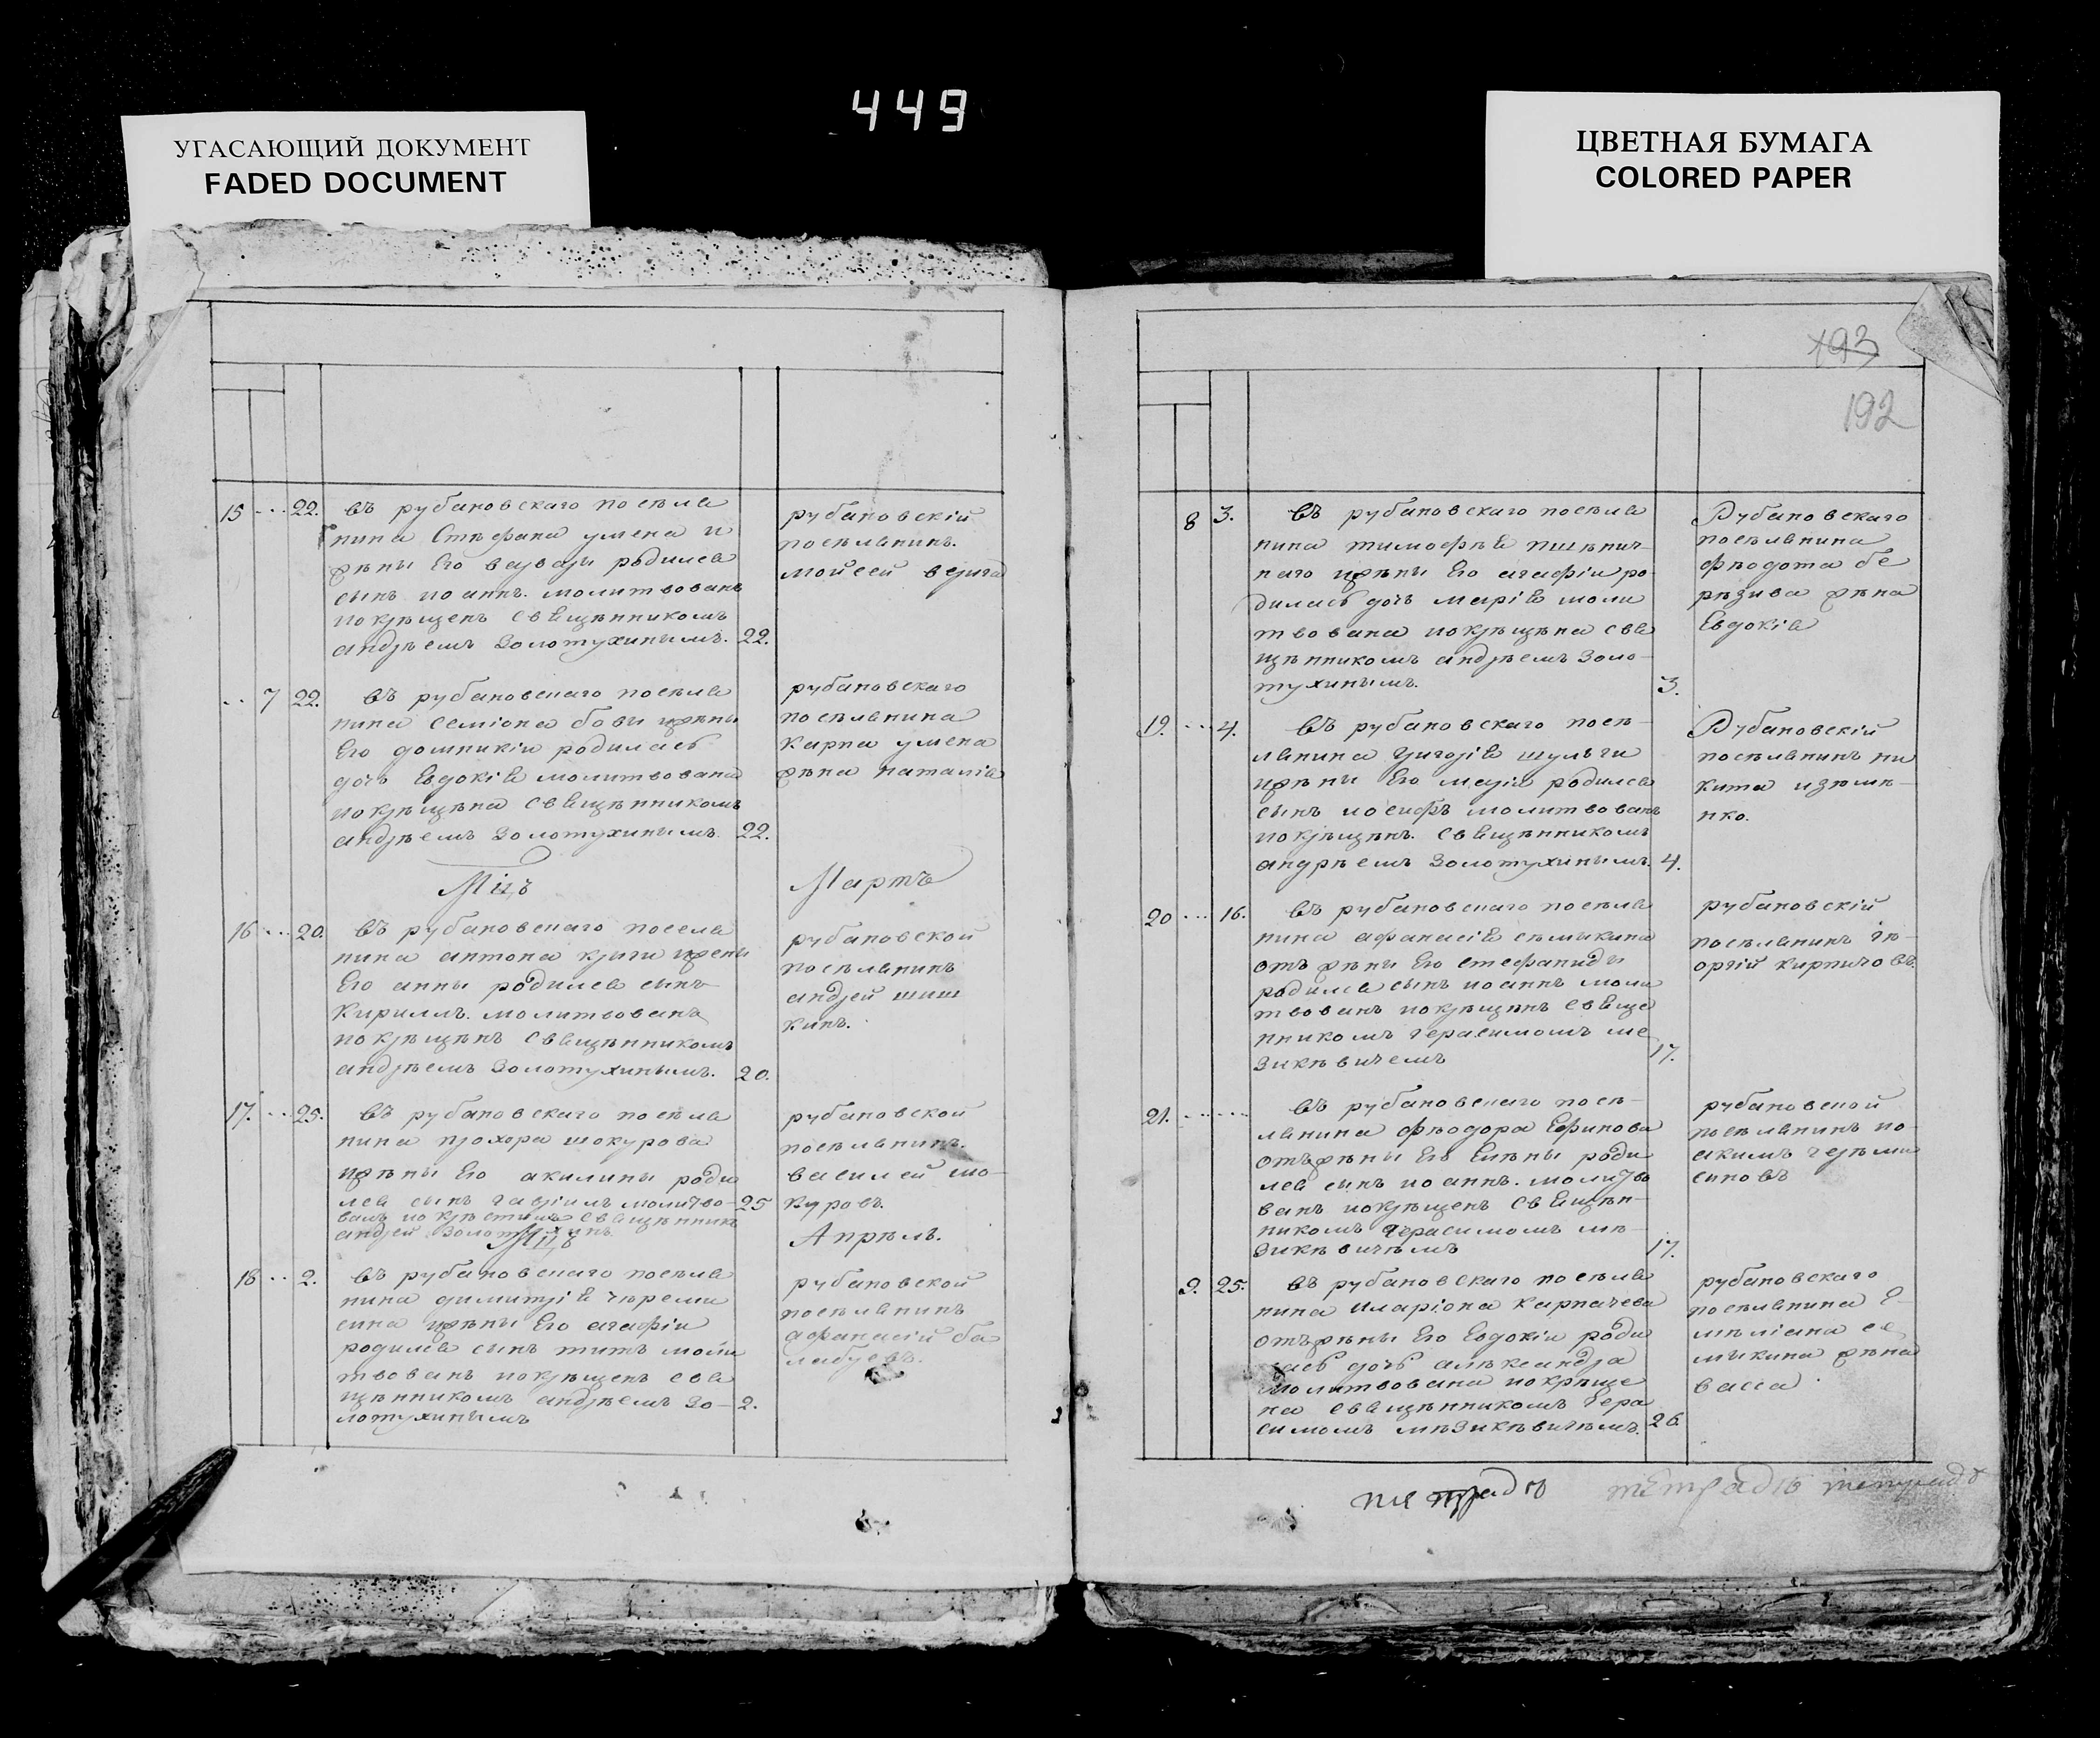 449
УГАСАЮЩИЙ ДОКУМЕНТ
FADED DOCUMENT
ЦВЕТНАЯ БУМАГА
COLORED PAPER
193
192
15 ... 22. въ рубановскаго посѣля
нина Стѣфана умена и
жѣны Его варвари родился
сынъ иоаннъ. молитвованъ
покрѣщенъ свящѣнникомъ
андрѣемъ Золотухинымъ. 22.
рубановскій
посѣлянинъ.
мойсей верига
.. 7 22. въ рубановскаго посѣля
нина семіона бови жѣны
Его домникіи родилась
дочь Евдокія молитвована
покрѣщѣна свящѣнникомъ
андрѣемъ Золотухинымъ. 22.
рубановскаго
посѣлянина
карпа умена
жѣна наталія
Мцъ Мартъ
16 ... 20. въ рубановскаго поселя
нина антона круги жены
Его анны родился сынъ
Кириллъ. молитвованъ
покрѣщѣнъ свящѣнникомъ
андрѣемъ Золотухинымъ. 20.
рубановской
посѣлянинъ
андрей шиш
кинъ.
17. ... 25. въ рубановскаго посѣля
нина прохора шокурова
жѣны Его акилины роди
лся сынъ гавріилъ молитво- 25
ванъ покрѣстилъ свящѣнникъ
андрей Золотухинъ.
рубановской
посѣлянинъ.
василей шо-
куровъ.
Мцъ Апрѣль.
18 .. 2. въ рубановскаго посѣля
нина димитрія чѣреми
сина жѣны Его агафіи
родился сынъ титъ моли
твованъ покрѣщенъ свя
щѣнникомъ андрѣемъ Зо- 2.
лотухинымъ
рубановской
посѣлянинъ
афанасій ба
лабуевъ.
8 3. въ рубановскаго посѣля
нина тимофѣя пшѣнич-
наго жѣны Его агафіи ро-
дилась дочь марія моли
твована покрѣщѣна свя
щѣнникомъ андрѣемъ Золо-
тухинымъ. 3.
Рубановскаго
посѣлянина
фѣодота бе
рѣзива жѣна
Евдокія
19. ... 4. въ рубановскаго посѣ-
лянина григорія шульги
жѣны Его марія родился
сынъ иосифъ молитвованъ
покрѣщѣнъ. свящѣнникомъ
андрѣемъ Золотухинымъ. 4.
Рубановскій
посѣлянинъ ни
кита
нко.
20 ... 16. въ рубановскаго посѣля
нина афанасія сѣмыкина
отъ жѣны Его стефаниды
родился сынъ иоаннъ моли
твованъ покрѣщѣнъ свяще
нникомъ герасимомъ ме 17.
зикѣвичемъ
рубановскій
посѣлянинъ гѣ-
оргій кирпичовъ.
21. ...... въ рубановскаго посѣ-
лянина фѣодора Ефимова
отъ жѣны Его Елѣны роди
лся сынъ иоаннъ. молитво
ванъ покрѣщенъ свящѣн-
никомъ герасимомъ мѣ-
зикѣвичѣмъ 17.
рубановской
посѣлянинъ ио-
акимъ черѣми
синовъ
9. 25. въ рубановскаго посѣля
нина иларіона карпачева
отъ жѣны Его Евдокіи роди
лась дочь алѣксандра
молитвована покрѣще
на свящѣнникомъ Гера
симомъ мѣзикѣвичѣмъ. 26
рубановскаго
посѣлянина Е-
мѣліана се
мыкина жѣна
васса
тетрадь тетрадь